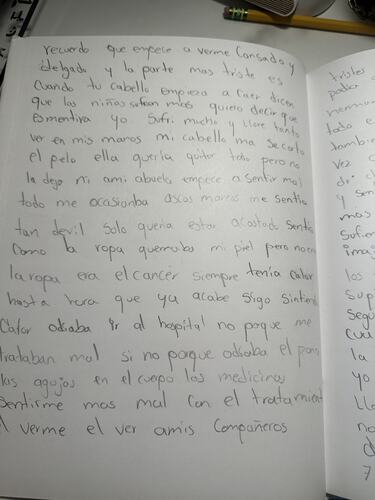 recuerdo que empece a verme Cansado y
delgado y la parte mas triste es
Cuando tu cabello empieza a caer dicen
que las niñas sufren mas quiero decir que
esmentira yo Sufri mucho y llore tanto
ver en mis manos mi cabello ma se corto
el pelo ella quería quitar todo pero no
la deje ni ami abuela empece a sentir mal
todo me ocasionba ascos mareos me sentia
tan devil solo queria estar acostado sentia
Como la ropa quemaba mi piel pero no era
la ropa era el cancér siempre tenía calor
hasta hora que ya acabe sigo sintiendo
Calor odiaba ir al hospital no porque me
trataban mal si no porque odiaba el
las agujas en el cuepo las medicinas
Sentirme mas mal Con el tratamient
verme el ver amis Compañeros
tristes
poder
tambie
vez
y sen
mas
Sufie
ima
los
Sup
segu
cui
la
yo
Llo
no
d
7